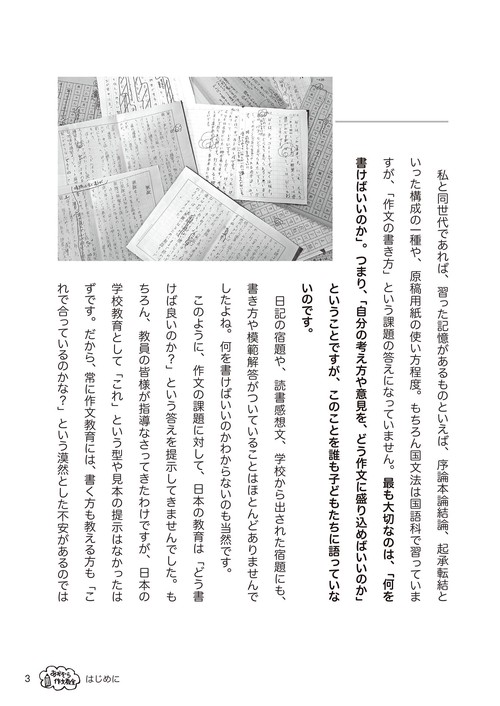 私と同世代であれば、習った記憶があるものといえば、序論本論結論、起承転結と
いった構成の一種や、原稿用紙の使い方程度。もちろん国文法は国語科で習っていま
すが、「作文の書き方」という課題の答えになっていません。最も大切なのは、「何を
書けばいいのか」。つまり、「自分の考え方や意見を、どう作文に盛り込めばいいのか」
ということですが、このことを誰も子どもたちに語っていな
いのです。
日記の宿題や、読書感想文、学校から出された宿題にも、
書き方や模範解答がついていることはほとんどありませんで
したよね。何を書けばいいのかわからないのも当然です。
このように、作文の課題に対して、日本の教育は「どう書
けば良いのか?」という答えを提示してきませんでした。も
ちろん、教員の皆様が指導なさってきたわけですが、日本の
学校教育として「これ」という型や見本の提示はなかったは
ずです。だから、常に作文教育には、書く方も教える方も「こ
れで合っているのかな?」という漠然とした不安があるのでは
3
はじめに